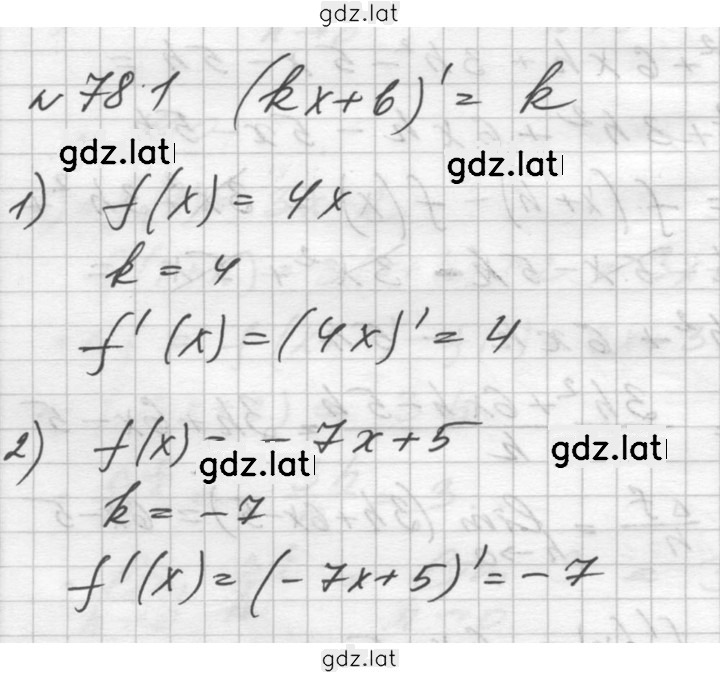 gdz.lat
№ 78.1 (kx+b)' = k
gdz.lat gdz.lat
1) f(x) = 4x
k = 4
f'(x) = (4x)' = 4
2) f(x) = -7x+5
gdz.lat gdz.lat
k = -7
f'(x) = (-7x+5)' = -7
gdz.lat